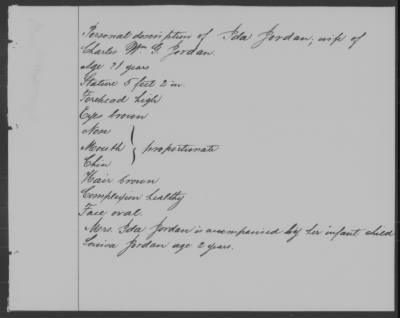 Personal description of Ida Jordan, wife of
Charles Wm G. Jordan.
Age 21 years
Stature 5 feet 2 in.
Forehead high
Eyes brown
Nose
Mouth } proportionate
Chin
Hair brown
Complexion healthy
Face oval.
Mrs. Ida Jordan is accompanied by her infant child
Jordan age 2 years.